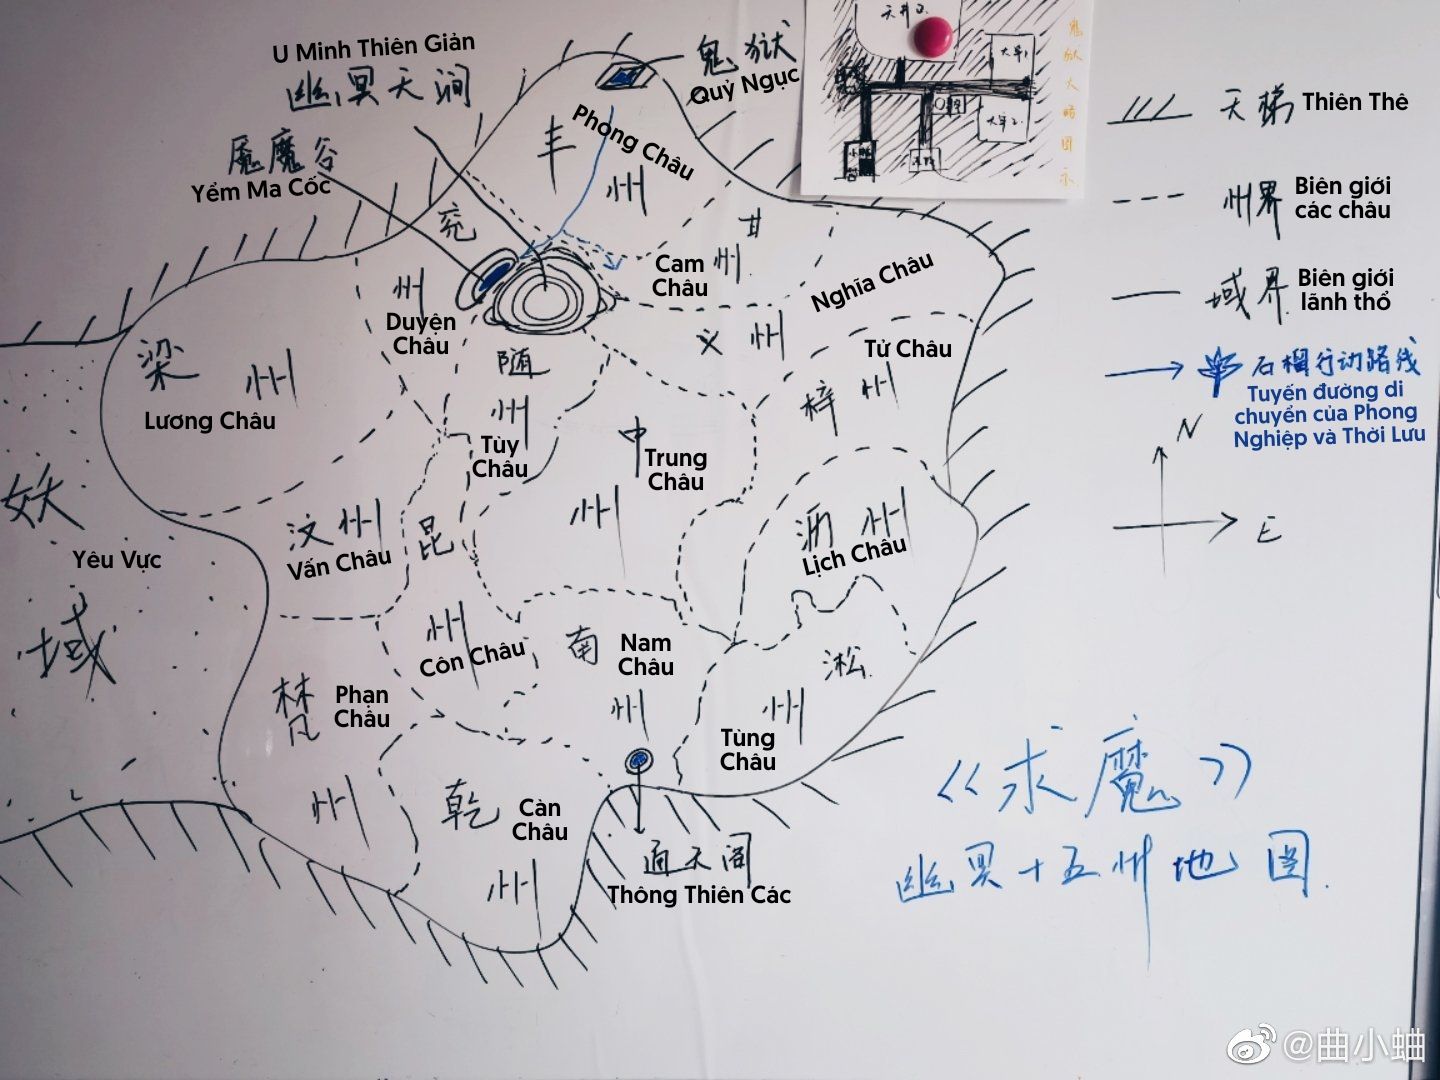 U Minh Thiên Giản
幽冥天涧
鬼狱
Quỷ Ngục
魇魔谷
Yểm Ma Cốc
丰州
Phong Châu
兖州
Duyện Châu
甘州
Cam Châu
Nghĩa Châu
义州
梁州
Lương Châu
随州
Tùy Châu
中州
Trung Châu
Tử Châu
梓州
汶州
Vấn Châu
昆州
Côn Châu
沥州
Lịch Châu
妖域
Yêu Vực
南州
Nam Châu
淞州
Tùng Châu
梵州
Phạn Châu
乾州
Càn Châu
通天阁
Thông Thiên Các
天梯
Thiên Thê
州界
Biên giới
các châu
域界
Biên giới
lãnh thổ
石榴行动路线
Tuyến đường di
chuyển của Phong
Nghiệp và Thời Lưu
N
E
《求魔》
幽冥十五州地图
鬼狱大略图示
@曲小蛐